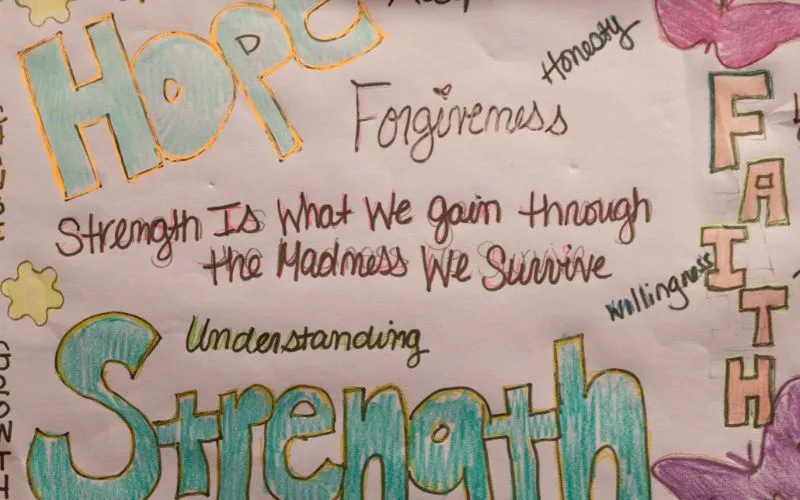 HOPE
Honesty
Forgiveness
FAITH
Strength Is What We gain through
the Madness We Survive
willingness
Understanding
Strength